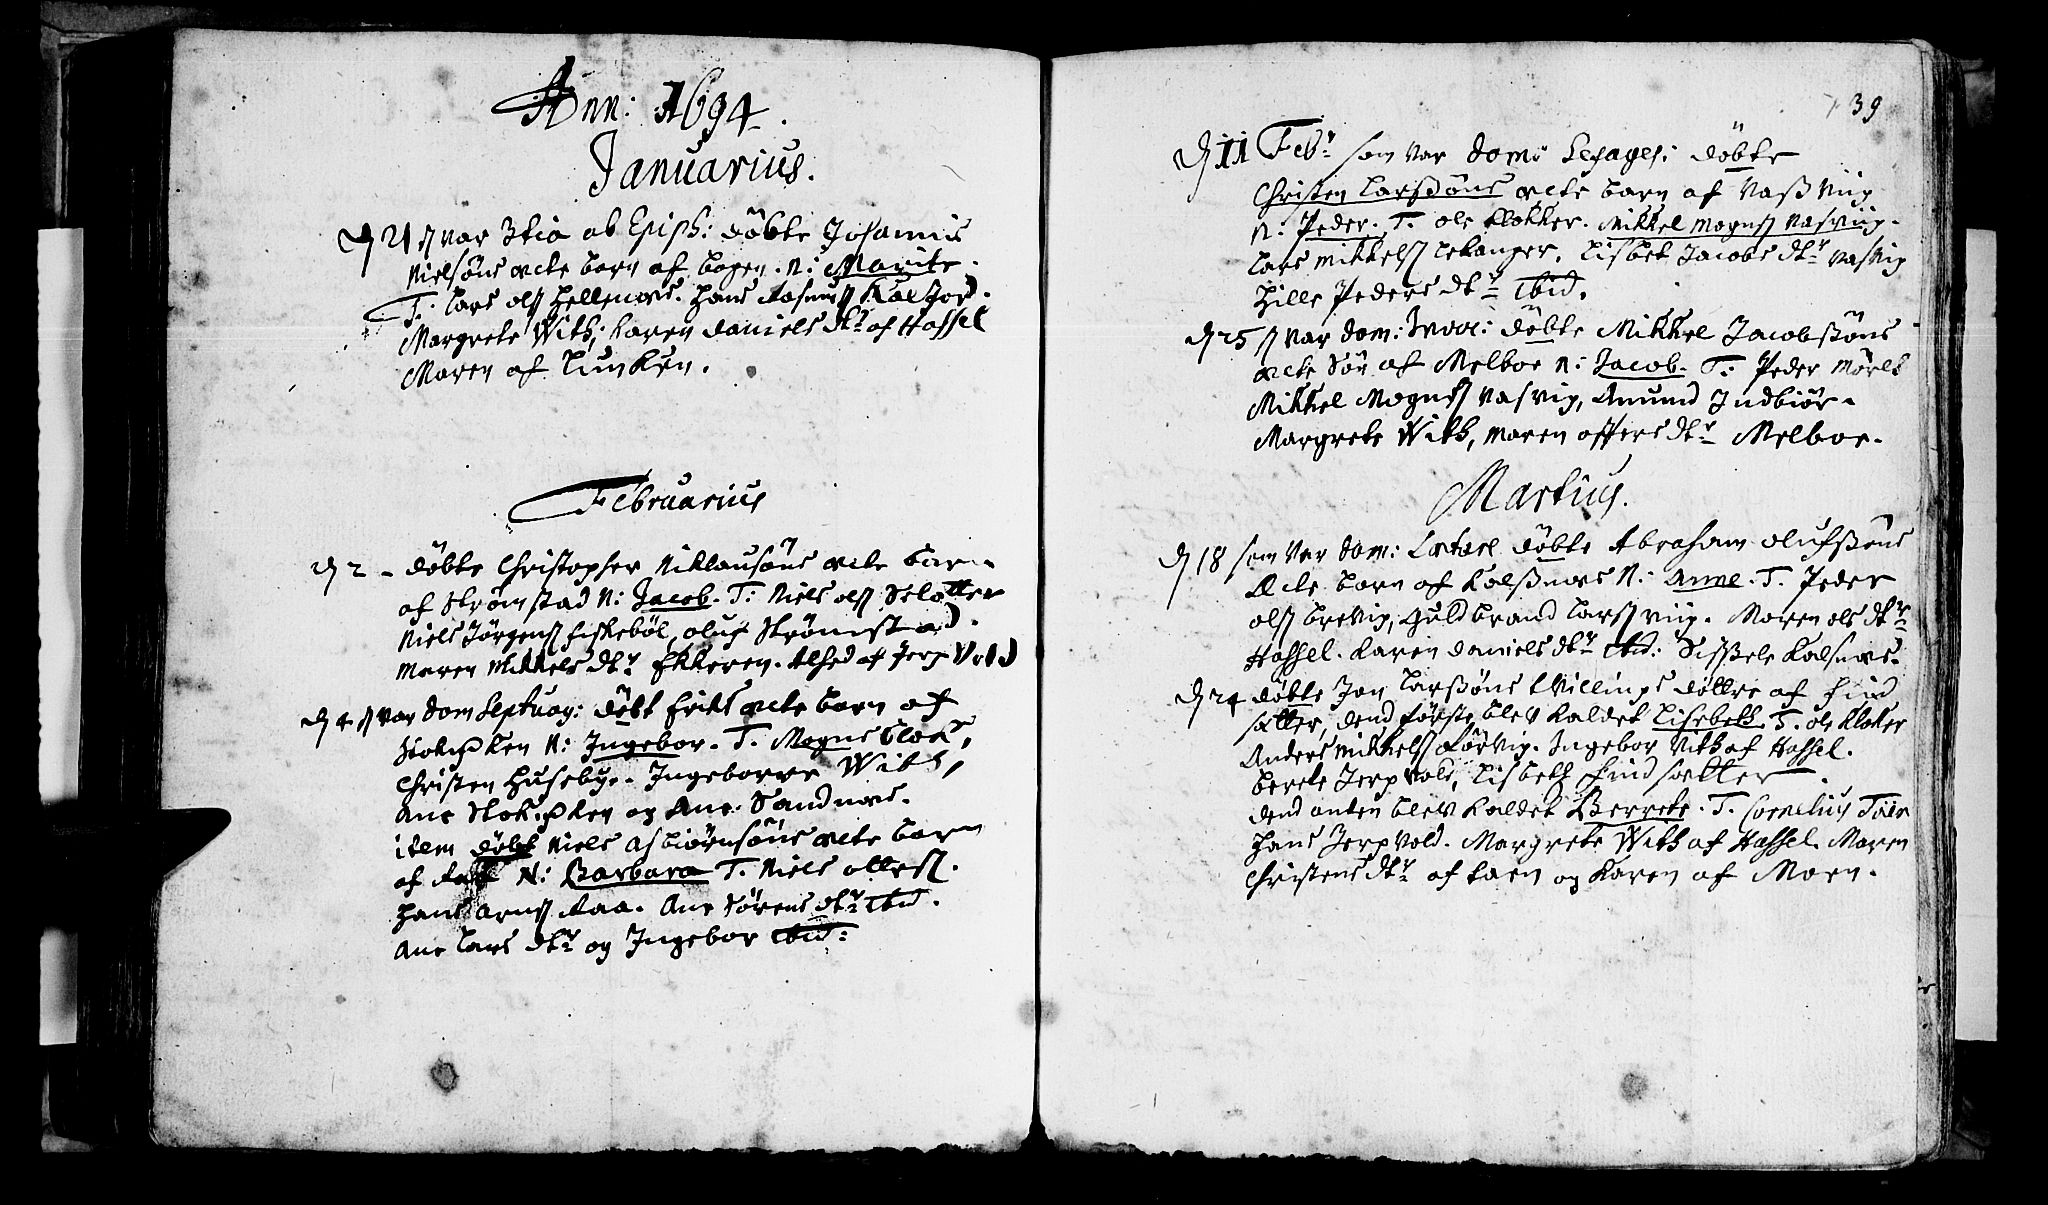 Ann: 1694.
Januarius.
D 21 som var 3tia ab Epiph: döbte Johannis
Nielsöns ecte barn af bogen. N: Marite.
T. Lars ols Hellemoes. Hans Rasmuss
Margrete With, Karen Daniels dtr af Hassel
Maren af Lunken.
Februarius
D 2 - döbte Christopher Niklausöns ecte barn
af Strömstad N: Jacob. T: Niels ols Slotter
Niels Jörgens fiskeböl, oluf Strömstad.
Maren Mikkels dtr Ekkeren. Alhed af Jerpvold
D 4 som var dom Septuag: döbt Eriks ecte barn af
Stokmarken N: Ingebor. T. Mogns Clok,
Christen Husebye. Ingeborre With,
Ane Stokmarken og Ane Sandnæs.
item döbt Niels Asbiörnsöns ecte barn
af N: Barbara T. Niels olless.
Hans Arns Raa. Ane Sörens dtr ibid.
Ane Lars dtr og Ingebor ibid:
39
D 11 Febr som var domi Sexages: döbte
Christen Larssöns ecte barn af Vassviig
N: Peder. T. ole Klokker. Mikkel Mogns Vasviig.
Lars Mikkels Lekanger. Lisbet Jacobs dtr Vasvig
Hille Peders dtr ibid.
D 25 som var dom: Invoc: döbte Mikkel Jacobssöns
ecte Sön af Melboe N: Jacob. T: Peder Mörk
Mikkel Mogns Vasvig, Amund Indbiör.
Margrete With, Maren offers dtr Melboe.
Martius.
D 18 som var dom: Lætare döbte Abraham olufssöns
Ecte barn af Kalssnæs N: Anne. T. Peder
ols brevig, Guldbrand Larss viig. Maren ols dtr
Hassel. Karen Daniels dtr ibid: Sissele Kalsnæs.
D 24 döbte Jon Larssöns tvillings döttre af find
sætter, dend förste blev kaldet Lisebeth. T. ole Kloker
Anders Mikkels Förvig. Ingebor With af Hassel.
Berete Jerpvold, Lisbeth findsætter.
dend anden blev kaldet Berrete. T. Cornelius
Hans Jerpvold. Margrete With af Hassel. Maren
Christens dtr af taen og Karen af Moen.